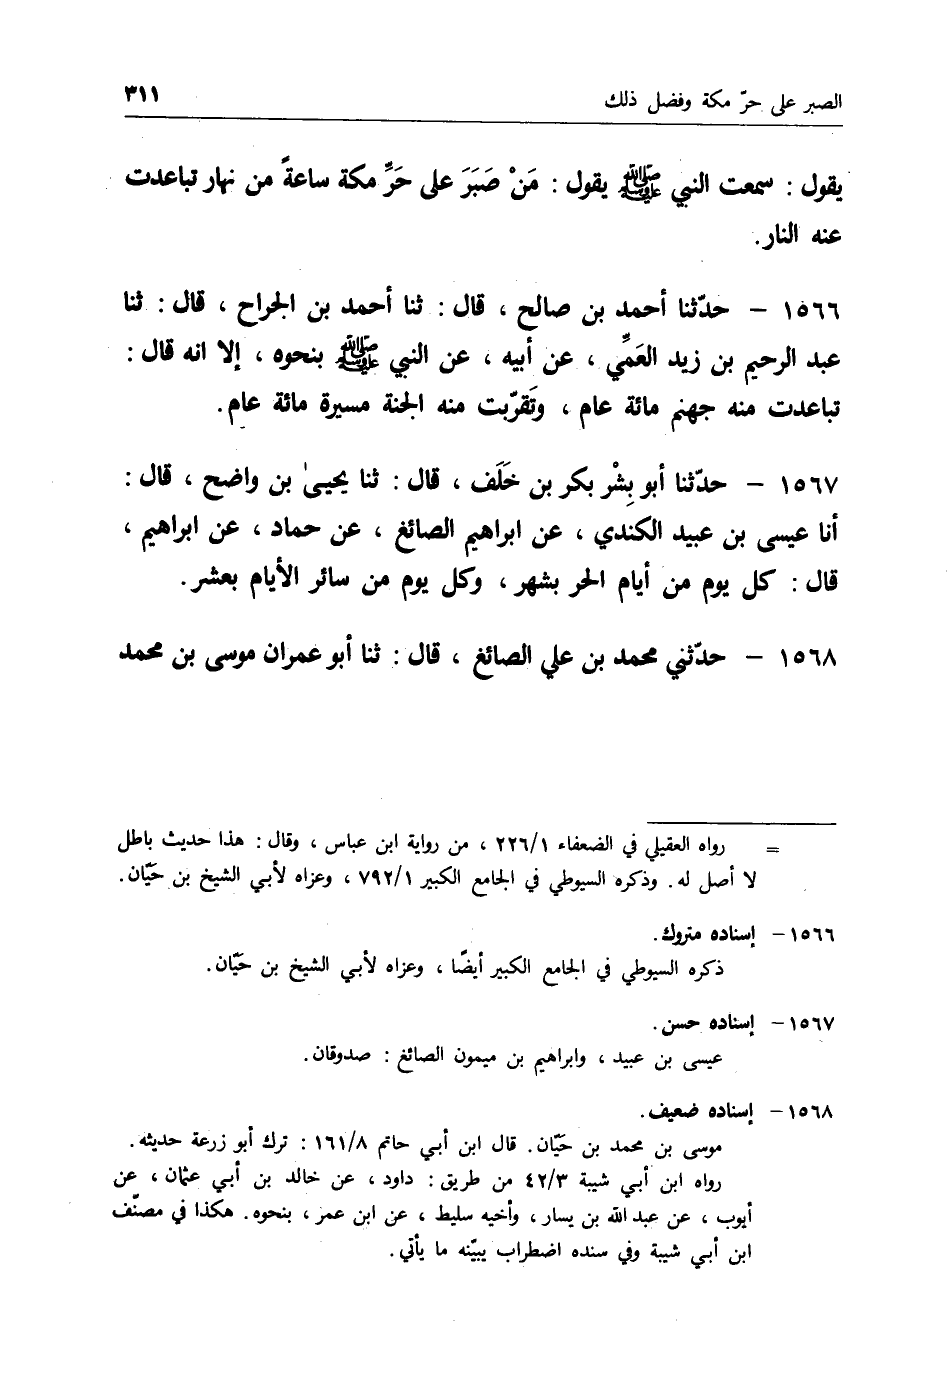 الصبر على حرّ مكة وفضل ذلك ٣١١
يقول : سمعت النبي ﷺ يقول : مَنْ صَبَرَ على حَرِّ مكة ساعةً من نهار تباعدت
عنه النار .
١٥٦٦ – حدّثنا أحمد بن صالح ، قال : ثنا أحمد بن الجراح ، قال : ثنا
عبد الرحيم بن زيد العَمِّي ، عن أبيه ، عن النبي ﷺ بنحوه ، إلا انه قال :
تباعدت منه جهنم مائة عام ، وتَقرّبت منه الجنة مسيرة مائة عام .
١٥٦٧ – حدّثنا أبو بِشْر بكر بن خَلَف ، قال : ثنا يحيىٰ بن واضح ، قال :
أنا عيسى بن عبيد الكندي ، عن ابراهيم الصائغ ، عن حماد ، عن ابراهيم ،
قال : كل يوم من أيام الحر بشهر ، وكل يوم من سائر الأيام بعشر .
١٥٦٨ – حدّثني محمد بن علي الصائغ ، قال : ثنا أبو عمران موسى بن محمد
= رواه العقيلي في الضعفاء ٢٢٦/١ ، من رواية ابن عباس ، وقال : هذا حديث باطل
لا أصل له . وذكره السيوطي في الجامع الكبير ٧٩٢/١ ، وعزاه لأبي الشيخ بن حَيّان .
١٥٦٦ – إسناده متروك .
ذكره السيوطي في الجامع الكبير أيضًا ، وعزاه لأبي الشيخ بن حَيّان .
١٥٦٧ – إسناده حسن .
عيسى بن عبيد ، وابراهيم بن ميمون الصائغ : صدوقان .
١٥٦٨ – إسناده ضعيف .
موسى بن محمد بن حَيّان . قال ابن أبي حاتم ١٦١/٨ : ترك أبو زرعة حديثه .
رواه ابن أبي شيبة ٤٢/٣ من طريق : داود ، عن خالد بن أبي عثمان ، عن
أيوب ، عن عبد الله بن يسار ، وأخيه سليط ، عن ابن عمر ، بنحوه . هكذا في مصنّف
ابن أبي شيبة وفي سنده اضطراب يبيّنه ما يأتي .